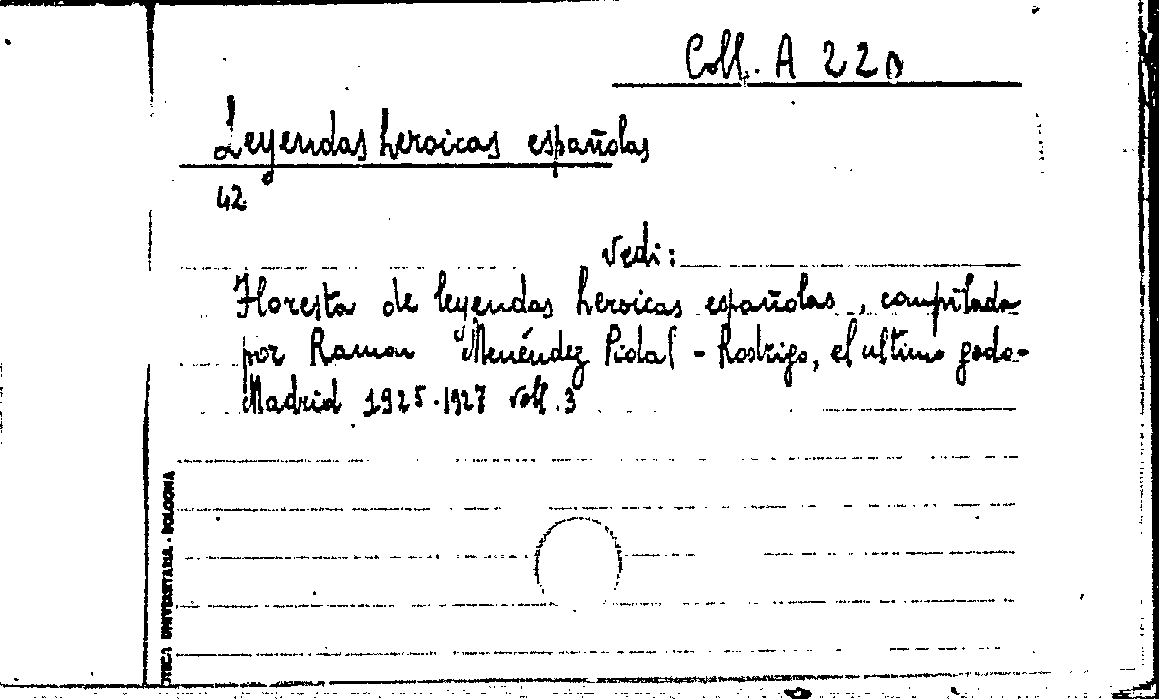 Coll. A 220
Leyendas heroicas españolas
42
vedi:
Floresta de leyendas heroicas españolas, compilada
por Ramon Menéndez Pidal - Rodrigo, el ultimo godo-
Madrid 1925-1927 voll. 3
UNIVERSITARIA - BOLOGNA